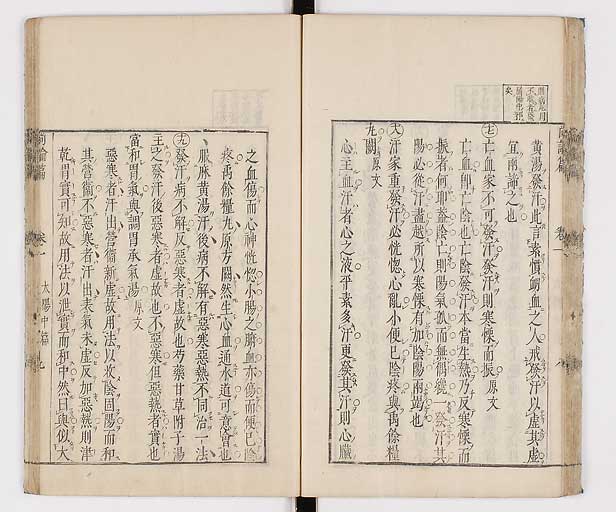 黃湯發汗此言素慣衂血之人戒發汗以虛其虛
宜兩諦之也
亡血家不可發汗發汗則寒慄而振 原文
亡血卽亡陰也亡陰發汗本當生熱乃反寒慄而
振者何耶蓋陰亡則陽氣孤而無偶纔一發汗其
陽必從汗盡越所以寒慄有加陰陽兩竭也
汗家重發汗必恍惚心亂小便已陰疼與禹餘糧
丸闕 原文
心主血汗者心之液平素多汗更發其汗則心臟
之血傷而心神恍惚小腸之腑血亦傷而便已陰
疼禹餘糧丸原方闕然生心血通水道可意會也
服麻黃湯汗後病不解有惡寒惡熱不同治一法
九 發汗病不解反惡寒者虛故也芍藥甘草附子湯
主之發汗後惡寒者虛故也不惡寒但惡熱者實也
當和胃氣與調胃承氣湯 原文
惡寒者汗出營衞新虛故用法以收陰固陽而和
其營衞不惡寒者汗出表氣未虛反加惡熱則津
乾胃實可知故用法以泄實而和中然曰與似大
尚論篇 卷一 太陽中篇 九